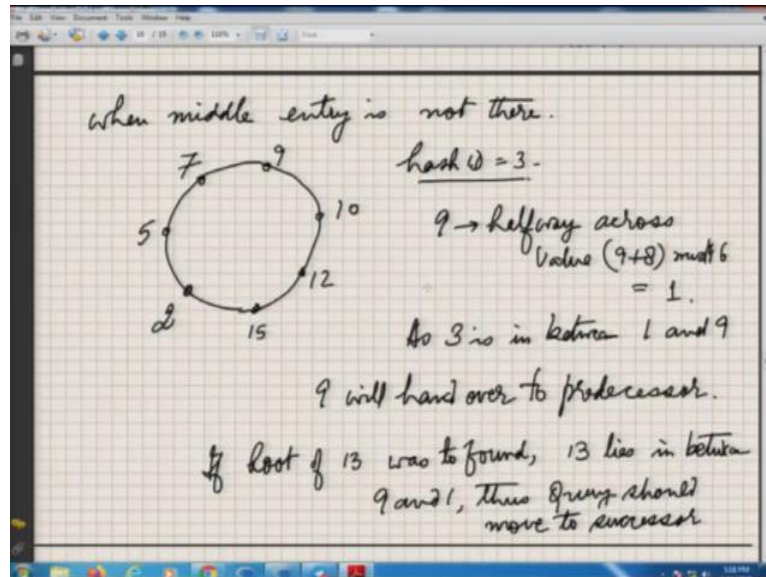 File Edit View Document Tools Window Help
when middle entry is not there.
hash id = 3-
7
9
5
10
2
12
15
9 → halfway across
Value (9+8) mod 16
= 1.
As 3 is in between 1 and 9
9 will hand over to predecessor.
If Root of 13 was to found, 13 lies in between
9 and 1, thus Query should
move to successor